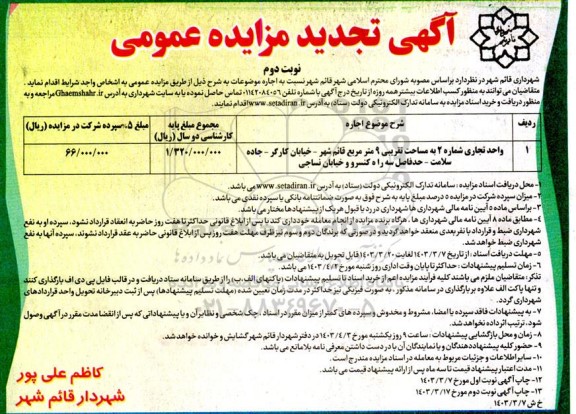 آگهی تجدید مزایده عمومی
نوبت دوم
شهرداری قائم شهر در نظر دارد براساس مصوبه شورای محترم اسلامی شهر قائم شهر نسبت به اجاره موضوعات به شرح ذیل از طریق مزایده عمومی به اشخاص واجد شرایط اقدام نماید .
متقاضیان می توانند به منظور کسب اطلاعات بیشتر همه روزه از تاریخ درج آگهی با شماره تلفن ۰۱۱۴۲۰۸۴۰۵۶ تماس حاصل نموده یا به سایت شهرداری به آدرس Ghaemshahr.ir مراجعه و به
منظور دریافت و خرید اسناد مزایده به سامانه تدارک الکترونیکی دولت (ستاد) به آدرس www.setadiran.ir اقدام نمایند.
ردیف
شرح موضوع اجاره
مجموع مبلغ پایه کارشناسی دو سال (ریال)
مبلغ ۵٪ سپرده شرکت در مزایده (ریال)
۱
واحد تجاری شماره ۲ به مساحت تقریبی ۹ متر مربع قائم شهر - خیابان کارگر - جاده
سلامت - حدفاصل سه راه کنسرو و خیابان نساجی
۱/۳۲۰/۰۰۰/۰۰۰
۶۶/۰۰۰/۰۰۰
۱- محل دریافت اسناد مزایده : سامانه تدارک الکترونیکی دولت (ستاد) به آدرس www.setadiran.ir می باشد.
۲- میزان سپرده شرکت در مزایده ۵ درصد مبلغ پایه به شرح فوق به صورت ضمانتنامه بانکی یا سپرده نقدی می باشد.
۳- براساس ماده ۵ آیین نامه مالی شهرداری ها شهرداری در رد یا قبول هر یک از پیشنهادها مختار می باشد.
۴- مطابق ماده ۸ آیین نامه مالی شهرداری ها . هرگاه برنده مزایده از انجام معامله خودداری کند یا پس از ابلاغ قانونی حداکثر تا هفت روز حاضر به انعقاد قرارداد نشود، سپرده او به نفع
شهرداری ضبط و قرارداد با نفر بعدی منعقد خواهد گردید و در صورتی که برندگان دوم و سوم نیز ظرف مهلت هفت روز پس از ابلاغ قانونی حاضر به عقد قرارداد نشوند، سپرده آنها به نفع
شهرداری ضبط خواهد شد.
۵- مهلت دریافت اسناد : از تاریخ ۱۴۰۳/۳/۷ لغایت ۱۴۰۳/۳/۲۰ قابل تحویل به متقاضیان می باشد.
۶- زمان تسلیم پیشنهادات : حداکثر تا پایان وقت اداری روز شنبه مورخ ۱۴۰۳/۴/۲ می باشد.
تذکر: متقاضیان ملزم می باشند کلیه فرآیند مزایده اعم از خرید اسناد تا تسلیم پیشنهادات (پاکتهای الف، ب، ) را از طریق سامانه ستاد دریافت و در قالب فایل پی دی اف بارگذاری کنند
و تنها پاکت الف علاوه بر بارگذاری در سامانه مذکور ، به صورت فیزیکی نیز حداکثر در مدت زمان تعیین شده (مهلت تسلیم پیشنهادها) پس از ثبت دبیرخانه تحویل واحد قراردادهای
شهرداری گردد.
۷- به پیشنهادات فاقد سپرده یا امضا، مشروط و مخدوش و سپرده های کمتر از میزان مقرر در اسناد ، چک شخصی و نظایر آن و یا پیشنهاداتی که پس از انقضا مدت مقرر در آگهی وصول
شود، ترتیب اثر داده نخواهد شد.
۸- زمان و محل بازگشایی پیشنهادات : ساعت ۹ روز یکشنبه مورخ ۱۴۰۳/۴/۳ در دفتر شهردار قائم شهر گشایش و خوانده خواهد شد.
۹- حضور کلیه پیشنهاددهندگان و یا نمایندگان آن با در دست داشتن معرفی نامه بلامانع می باشد.
۱۰- سایر اطلاعات و جزئیات مربوط به معامله در اسناد مزایده مندرج است .
۱۱- مدت اعتبار پیشنهاد قیمت تا سه ماه پس از ارائه پیشنهاد قیمت می باشد.
۱۲- چاپ آگهی نوبت اول مورخ ۱۴۰۳/۳/۷
۱۳- چاپ آگهی نوبت دوم مورخ ۱۴۰۳/۳/۱۷
خ ش ۱۴۰۳/۳/۷
کاظم علی پور
شهردار قائم شهر